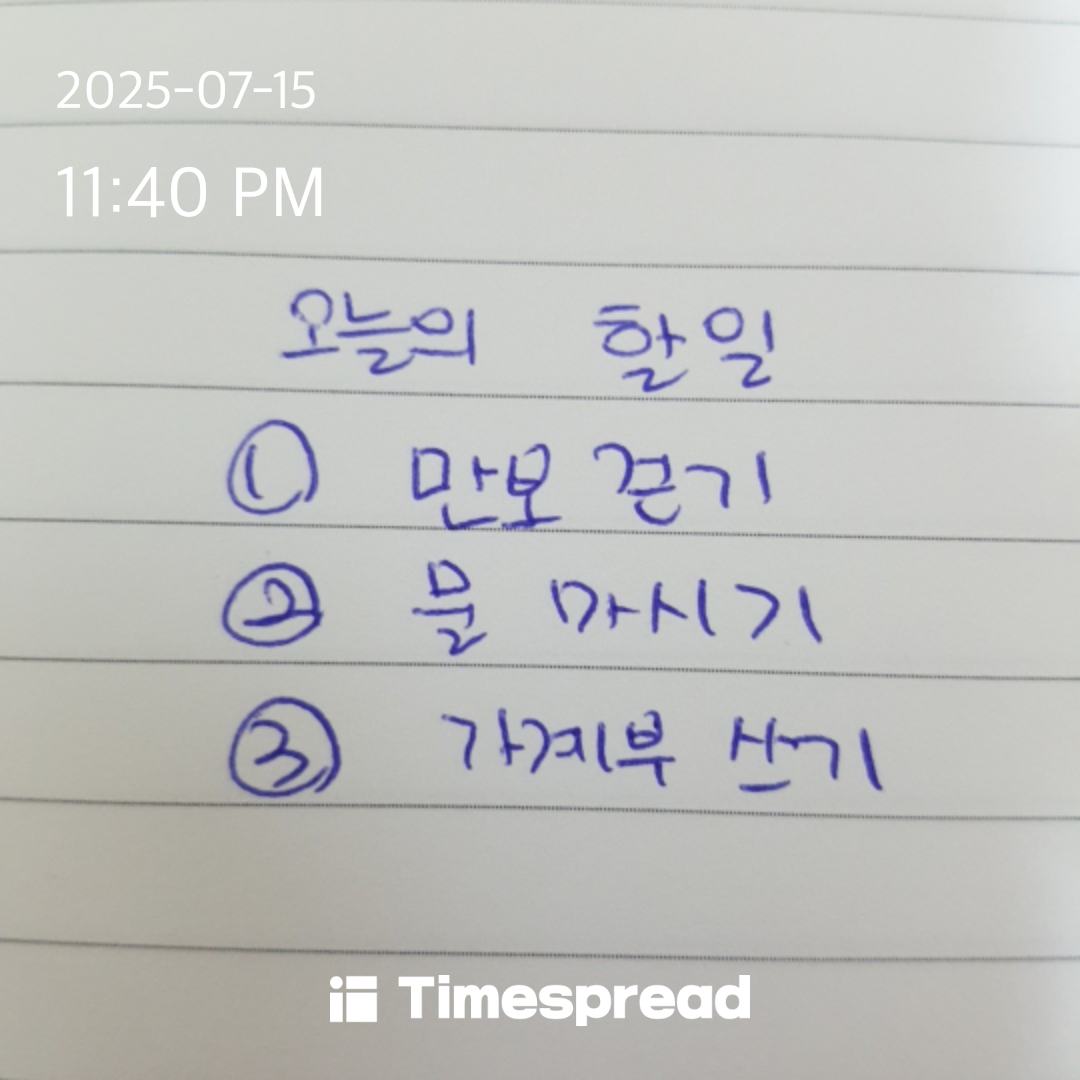 2025-07-15
11:40 PM
오늘의 할일
① 만보 걷기
② 물 마시기
③ 가계부 쓰기
Timespread